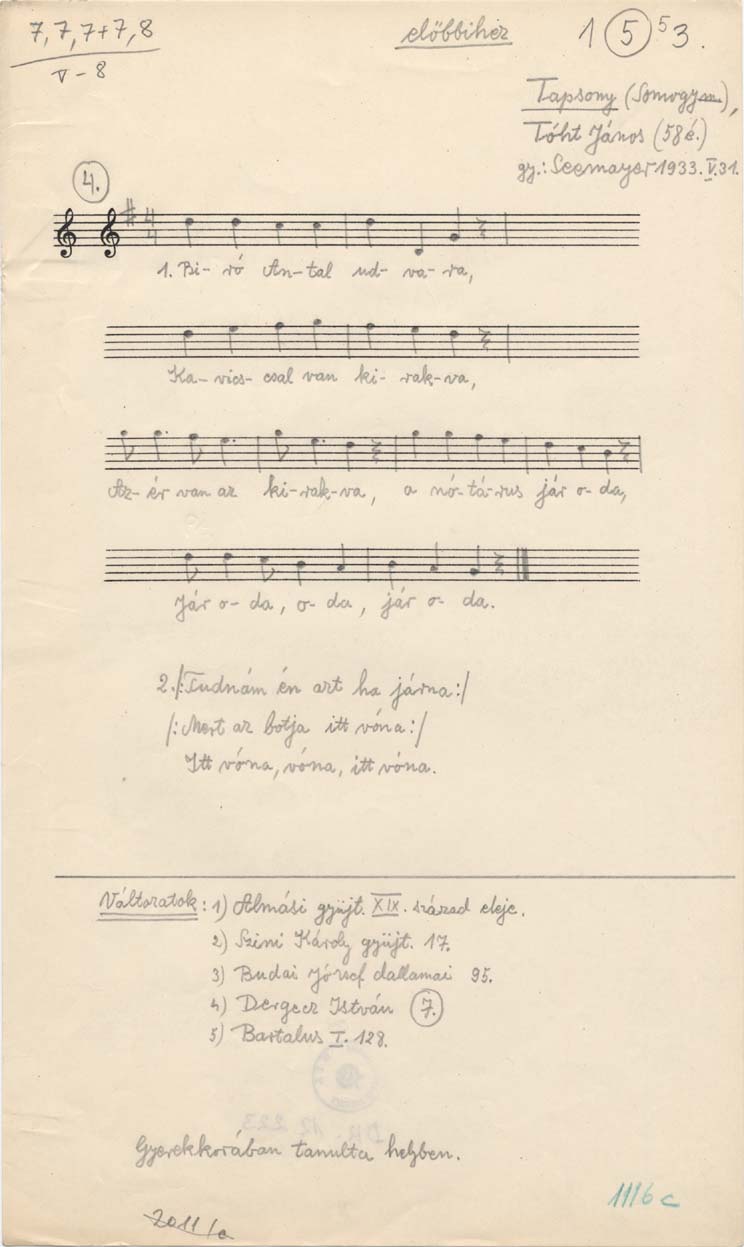 7, 7, 7+7, 8
V – 8
előbbihez
1 (5) 5 3.
Tapsony (Somogy),
Tóht János (58 é.)
gy.: Seemayer 1933. V. 31.
4.
1. Bi- ró An-tal ud- va- ra,
Ka- vics- csal van ki- rak-va,
Az- ér van az ki-rak-va, a nó-tá-rus jár o- da,
Jár o- da, o- da, jár o- da.
2. /: Tudnám én azt ha járna :/
/: Mert az botja itt vóna :/
Itt vóna, vóna, itt vóna.
Változatok: 1) Almási gyüjt. XIX. század eleje.
2) Szini Károly gyüjt. 17.
3) Budai József dallamai 95.
4) Dergecz István (7.)
5) Bartalus I. 128.
Gyerekkorában tanulta helyben.
1116 c
2011/a